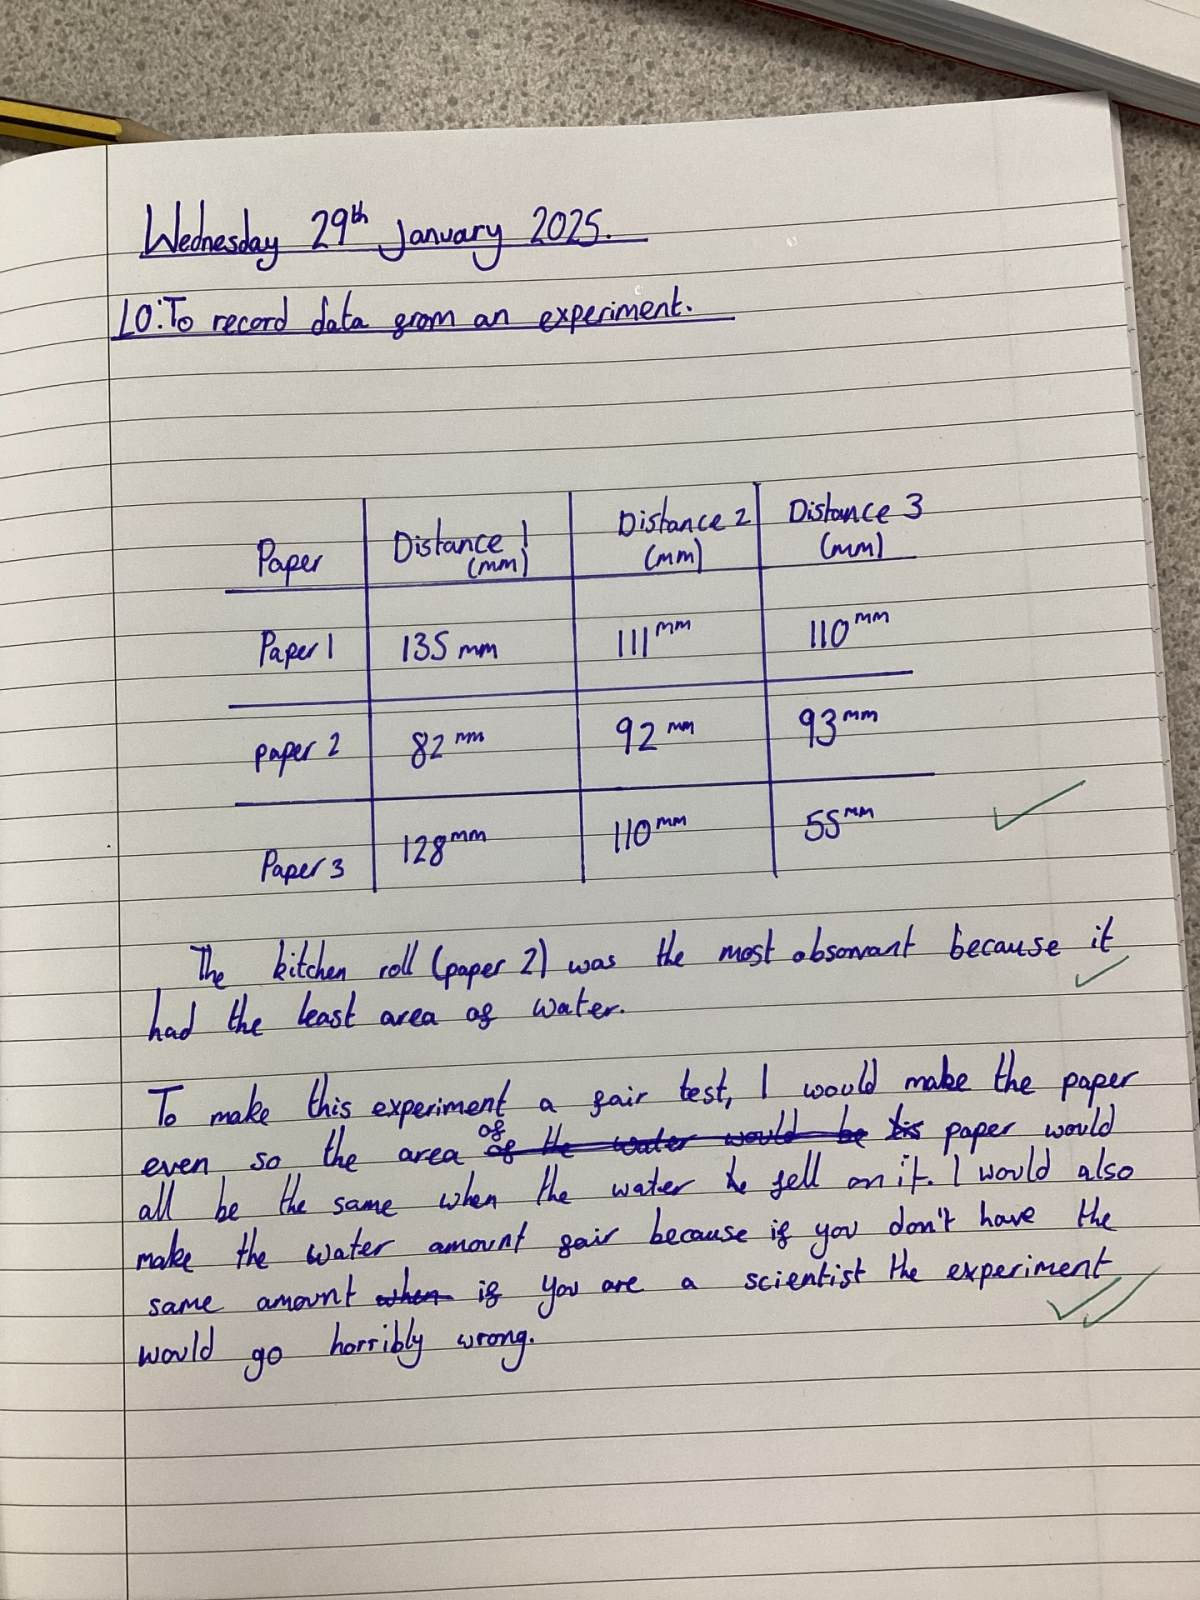 Wednesday 29th January 2025.
LO: To record data from an experiment.
Paper Distance 1 (mm) Distance 2 (mm) Distance 3 (mm)
Paper 1 135 mm 111 mm 110 mm
paper 2 82 mm 92 mm 93 mm
Paper 3 128 mm 110 mm 55 mm
The kitchen roll (paper 2) was the most absorvant because it
had the least area of water.
To make this experiment a fair test, I would make the paper
even so the area of paper would
all be the same when the water fell on it. I would also
make the water amount fair because if you don't have the
same amount if you are a scientist the experiment
would go horribly wrong.